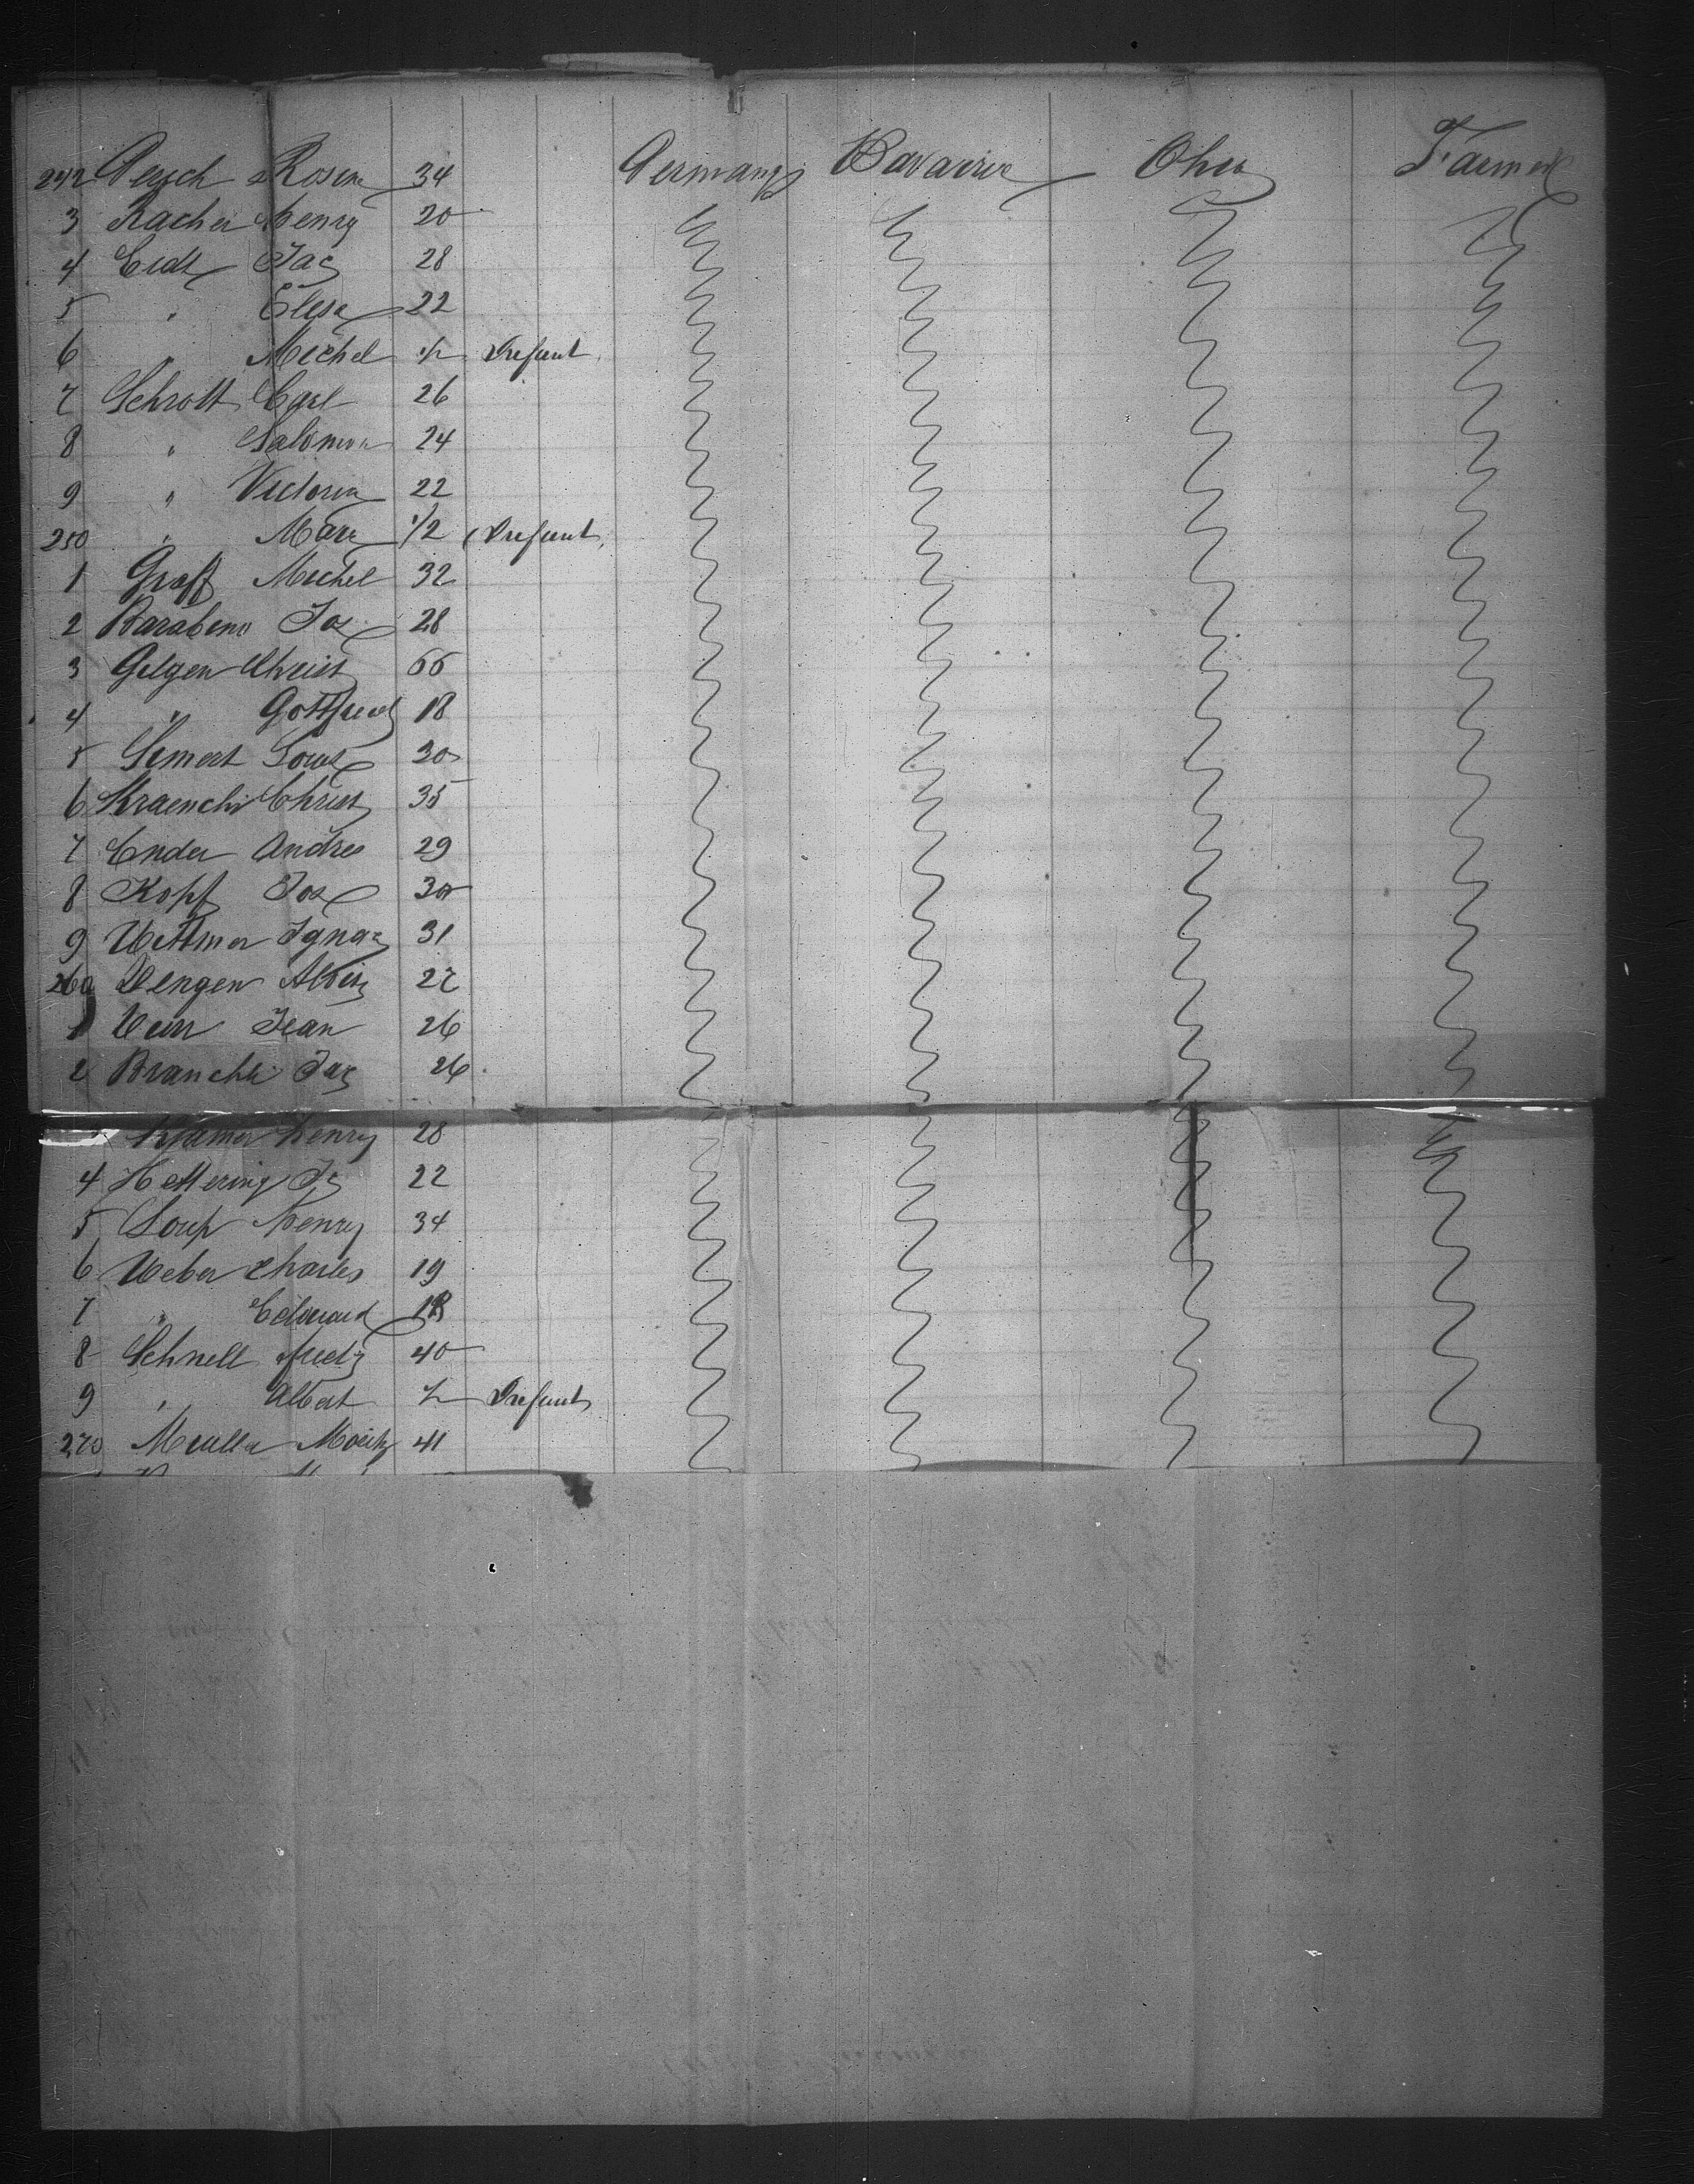 242 Pesch Rosine 34 Germany Bavaria Ohio Farmer
3 Racher Henry 20
4 Eidt Jac 28
5 " Elise 22
6 " Michel 1/2 Infant
7 Schrott Carl 26
8 " Salomon 24
9 " Victoria 22
250 " Marie 1/2 Infant
1 Graff Michel 32
2 Barabino Jos 28
3 Gilgen Christ 66
4 " Gottfried 18
5 Simert Louis 30
6 Kraenchi Christ 35
7 Ender Andreo 29
8 Kopf Jos 30
9 Uttmer Ignaz 31
260 Wengen Albin 27
1 Jean 26
2 Branchli Jac 26
Kramer Henry 28
4 Hettering Jc 22
5 Soup Henry 34
6 Ueber Charles 19
7 " Edouard 18
8 Schnell Fredr 40
9 " Albert 1/2 Infant
270 Muller Moritz 41